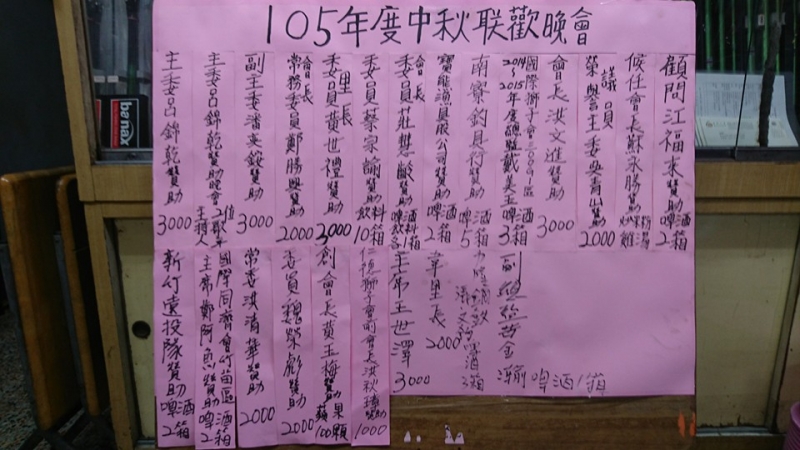 105年度中秋联歡晚會
顧問江福來贊助啤酒2箱
候任會長蘇永勝贊助炒米粉雞湯
議員
榮譽主委吳青山贊助2000
會長洪文進贊助3000
國際獅子會三00
2014~2015年度總監戴吳玉啤酒3箱
南寮釣具行贊助啤酒5箱
寶熊漁具股公司贊助啤酒2箱
會長
委員莊慧齡贊助啤酒飲料各
委員蔡宗諭贊助飲料10箱
里長
委員黃世禮贊助3000
會長
常務委員鄭勝興贊助2000
副主委潘
贊助3000
主委呂錦乾贊助晚會主持人
主委呂錦乾贊助3000
副
金
啤酒1箱
韋里長2000
主席王世澤3000
仁德獅子會前會長洪秋
贊助1000
創會長黃玉梅贊助蘋果100顆
委員魏榮彪贊助2000
常委洪清華贊助2000
國際同濟會竹苗區
主席鄭阿
贊助啤酒2箱
新竹遠投隊贊助啤酒2箱
banax